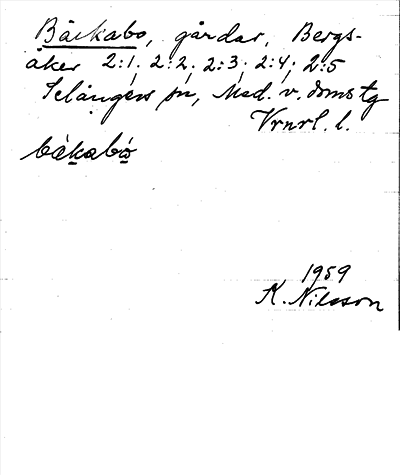 Backabo, gårdar, Bergs-
åker 2:1, 2:2, 2:3, 2:4, 2:5
Selångers sn, Med. v. doms tg
Vrnrl. l.
bakabo
1959
K. Nilsson